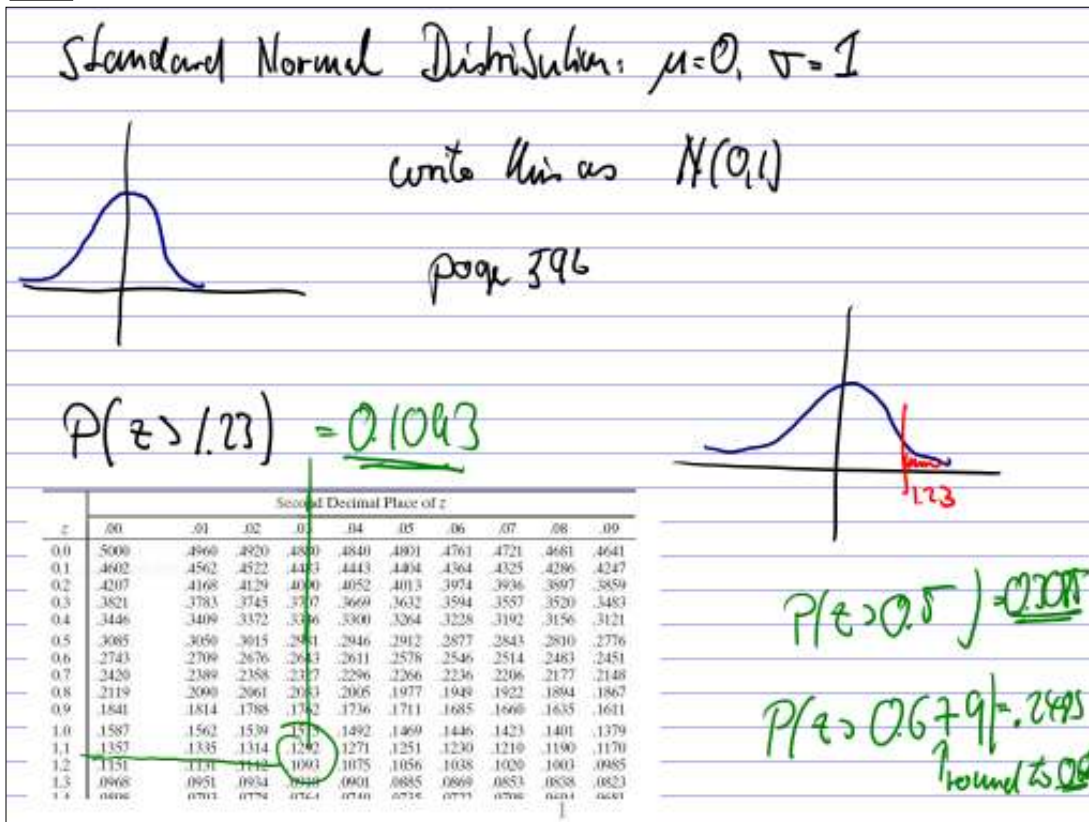 Standard Normal Distribution: μ=0, σ=1
write this as N(0,1)
page 596
P(z>1.23) = 0.1093
1.23
Second Decimal Place of z
z .00 .01 .02 .03 .04 .05 .06 .07 .08 .09
0.0 .5000 .4960 .4920 .4880 .4840 .4801 .4761 .4721 .4681 .4641
0.1 .4602 .4562 .4522 .4483 .4443 .4404 .4364 .4325 .4286 .4247
0.2 .4207 .4168 .4129 .4090 .4052 .4013 .3974 .3936 .3897 .3859
0.3 .3821 .3783 .3745 .3707 .3669 .3632 .3594 .3557 .3520 .3483
0.4 .3446 .3409 .3372 .3336 .3300 .3264 .3228 .3192 .3156 .3121
0.5 .3085 .3050 .3015 .2981 .2946 .2912 .2877 .2843 .2810 .2776
0.6 .2743 .2709 .2676 .2643 .2611 .2578 .2546 .2514 .2483 .2451
0.7 .2420 .2389 .2358 .2327 .2296 .2266 .2236 .2206 .2177 .2148
0.8 .2119 .2090 .2061 .2033 .2005 .1977 .1949 .1922 .1894 .1867
0.9 .1841 .1814 .1788 .1762 .1736 .1711 .1685 .1660 .1635 .1611
1.0 .1587 .1562 .1539 .1515 .1492 .1469 .1446 .1423 .1401 .1379
1.1 .1357 .1335 .1314 .1292 .1271 .1251 .1230 .1210 .1190 .1170
1.2 .1151 .1131 .1112 .1093 .1075 .1056 .1038 .1020 .1003 .0985
1.3 .0968 .0951 .0934 .0918 .0901 .0885 .0869 .0853 .0838 .0823
P(z>0.5) = 0.3085
P(z> 0.679) = .2485
round to
1